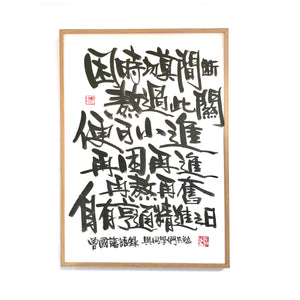 困時切莫間斷
熬過此關
便可小進
再困再進
再熬再奮
自有亨通精進之日
曾國藩語錄 與同學們共勉